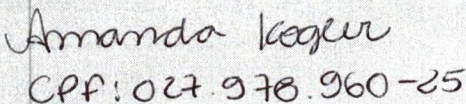 Amanda Kogur
CPF: 027.978.960-25